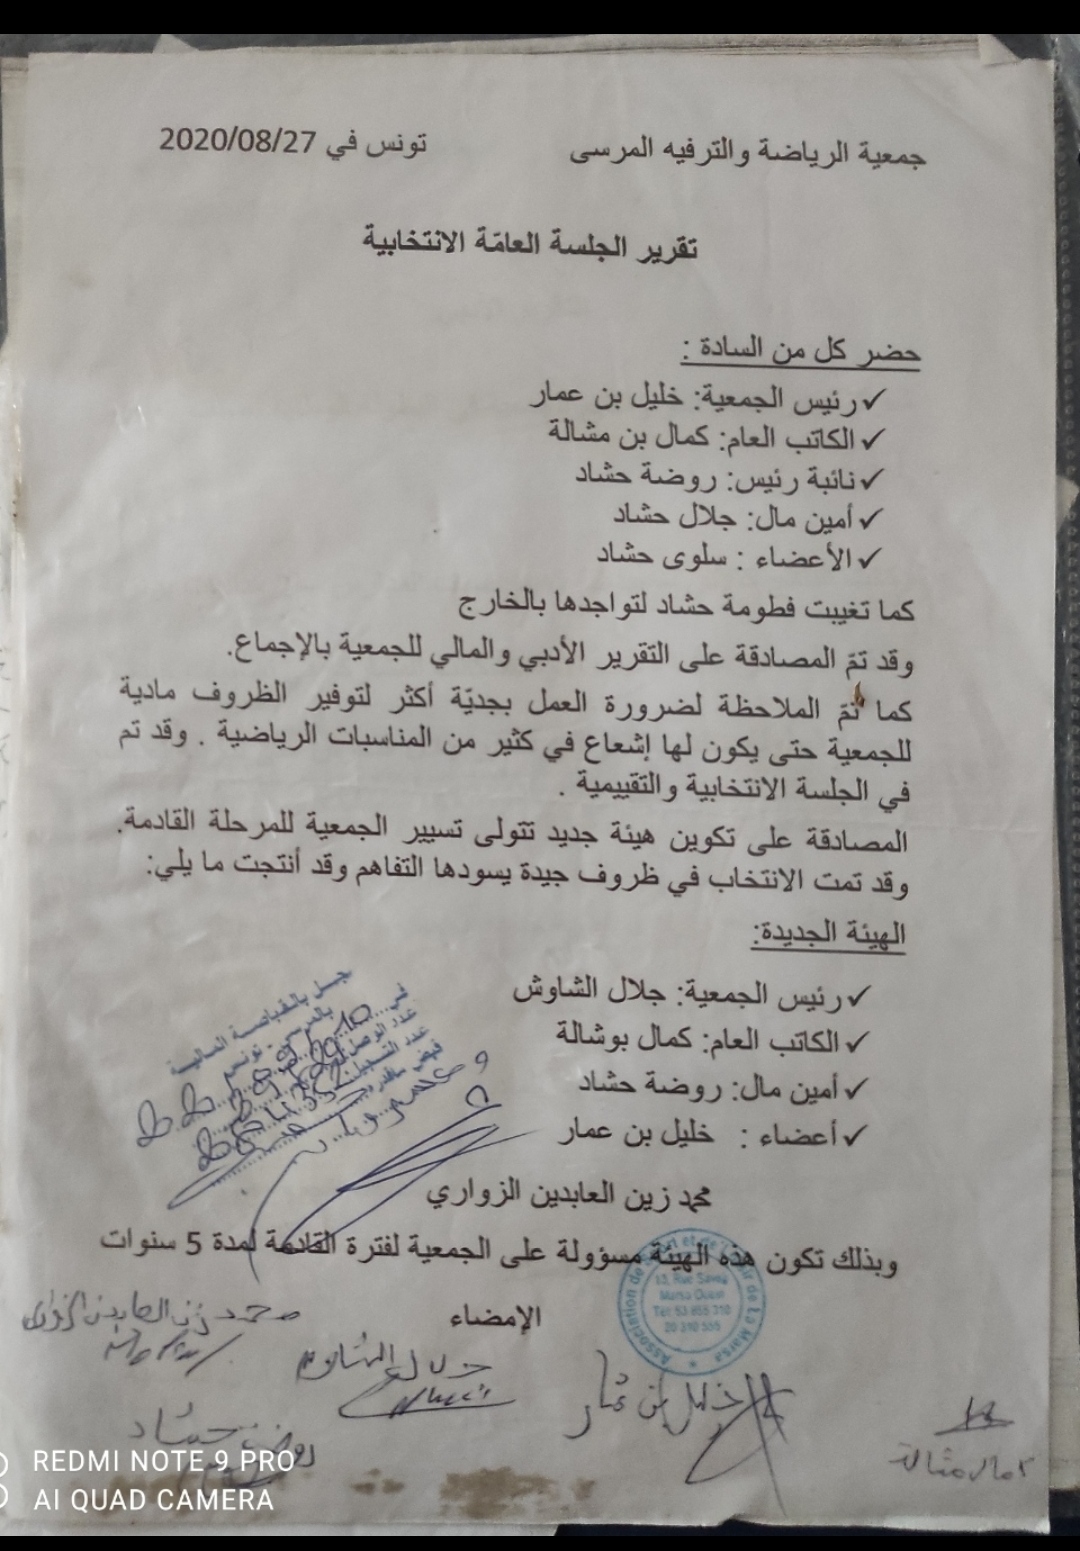 جمعية الرياضة والترفيه المرسى تونس في 2020/08/27
تقرير الجلسة العامّة الانتخابية
حضر كل من السادة :
✓ رئيس الجمعية: خليل بن عمار
✓ الكاتب العام: كمال بن مشالة
✓ نائبة رئيس: روضة حشاد
✓ أمين مال: جلال حشاد
✓ الأعضاء : سلوى حشاد
كما تغيبت فطومة حشاد لتواجدها بالخارج
وقد تمّ المصادقة على التقرير الأدبي والمالي للجمعية بالإجماع.
كما تمّ الملاحظة لضرورة العمل بجديّة أكثر لتوفير الظروف مادية
للجمعية حتى يكون لها إشعاع في كثير من المناسبات الرياضية . وقد تم
في الجلسة الانتخابية والتقييمية .
المصادقة على تكوين هيئة جديد تتولى تسيير الجمعية للمرحلة القادمة.
وقد تمت الانتخاب في ظروف جيدة يسودها التفاهم وقد أنتجت ما يلي:
الهيئة الجديدة:
✓ رئيس الجمعية: جلال الشاوش
✓ الكاتب العام: كمال بوشالة
✓ أمين مال: روضة حشاد
✓ أعضاء : خليل بن عمار
محمد زين العابدين الزواري
وبذلك تكون هذه الهيئة مسؤولة على الجمعية لفترة القادمة لمدة 5 سنوات
الإمضاء
سجل بالقباضة المالية
بالمرسى - تونس
في
عدد الوصل
عدد التسجيل
قبض ما قدره
Association de Sport et de Loisir de La Marsa
Marsa Ouest
Tel: 53 855 310
20 310 555
محمد زين العابدين الزواري
جلال الشاوش
خليل بن عمار
كمال مشالة
روضة حشاد
REDMI NOTE 9 PRO
AI QUAD CAMERA